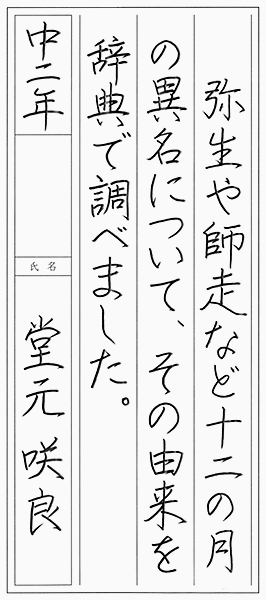 弥生や師走など十二の月
の異名について、その由来を
辞典で調べました。
中二年
氏名
堂元 咲良